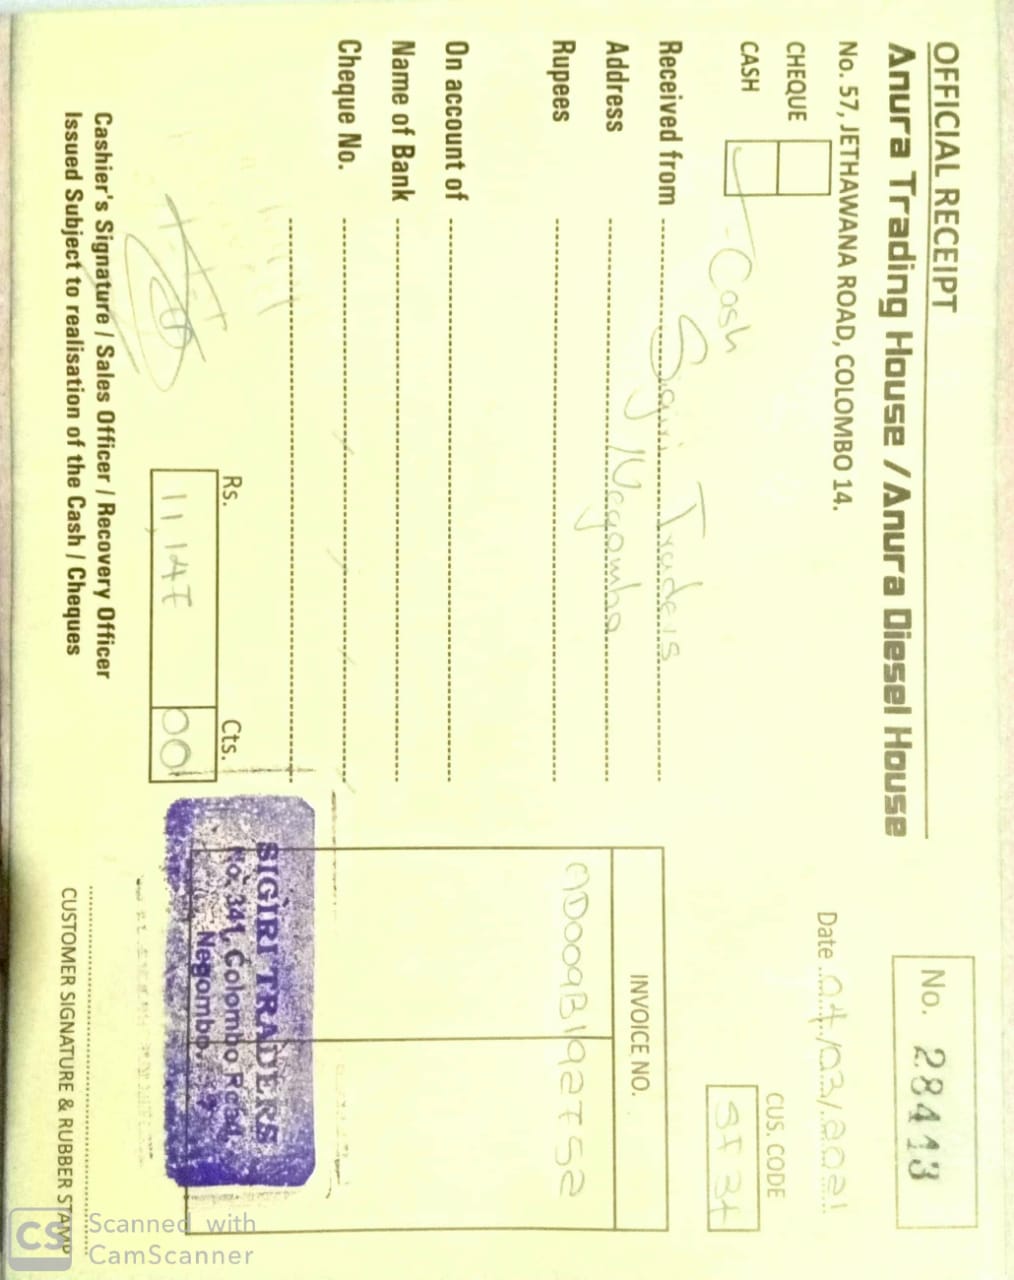 OFFICIAL RECEIPT
Anura Trading House / Anura Diesel House
No. 57, JETHAWANA ROAD, COLOMBO 14.
No. 28443
Date 04/03/2021
CHEQUE
CASH - Cash
CUS. CODE
Received from Sigiri Traders
Address Negombo
Rupees
INVOICE NO.
On account of
Name of Bank
Cheque No.
Rs. Cts.
00
SIGIRI TRADERS
No. 341, Colombo Road,
Negombo.
Cashier's Signature / Sales Officer / Recovery Officer
Issued Subject to realisation of the Cash / Cheques
CUSTOMER SIGNATURE & RUBBER STAMP
CS Scanned with
CamScanner